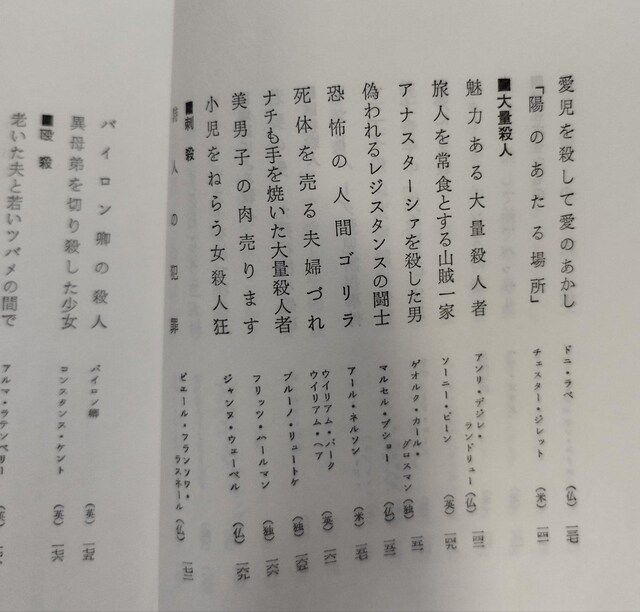 愛児を殺して愛のあかし ドニ・ラベ (仏) 一三七
「陽のあたる場所」 チェスター・ジレット (米) 一四一
■大量殺人
魅力ある大量殺人者 アンリ・デジレ・ランドリュー (仏) 一四二
旅人を常食とする山賊一家 ソーニー・ビーン (英) 一四九
アナスターシァを殺した男 ゲオルク・カール・グロスマン (独) 一五一
偽われるレジスタンスの闘士 マルセル・プショー (仏) 一五三
恐怖の人間ゴリラ アール・ネルソン (米) 一五七
死体を売る夫婦づれ ウイリアム・バーク
ウイリアム・ヘア (英) 一六一
ナチも手を焼いた大量殺人者 ブルーノ・リュートケ (独) 一六五
美男子の肉売ります フリッツ・ハールマン (独) 一六六
小児をねらう女殺人狂 ジャンヌ・ウェーベル (仏) 一六九
■刺殺
人の犯罪 ピエール・フランソワ・ラスネール (仏) 一七三
バイロン卿の殺人 バイロン卿 (英) 一七五
異母弟を切り殺した少女 コンスタンス・ケント (英) 一七六
■殴殺
老いた夫と若いツバメの間で アルマ・ラテンベリー (英)